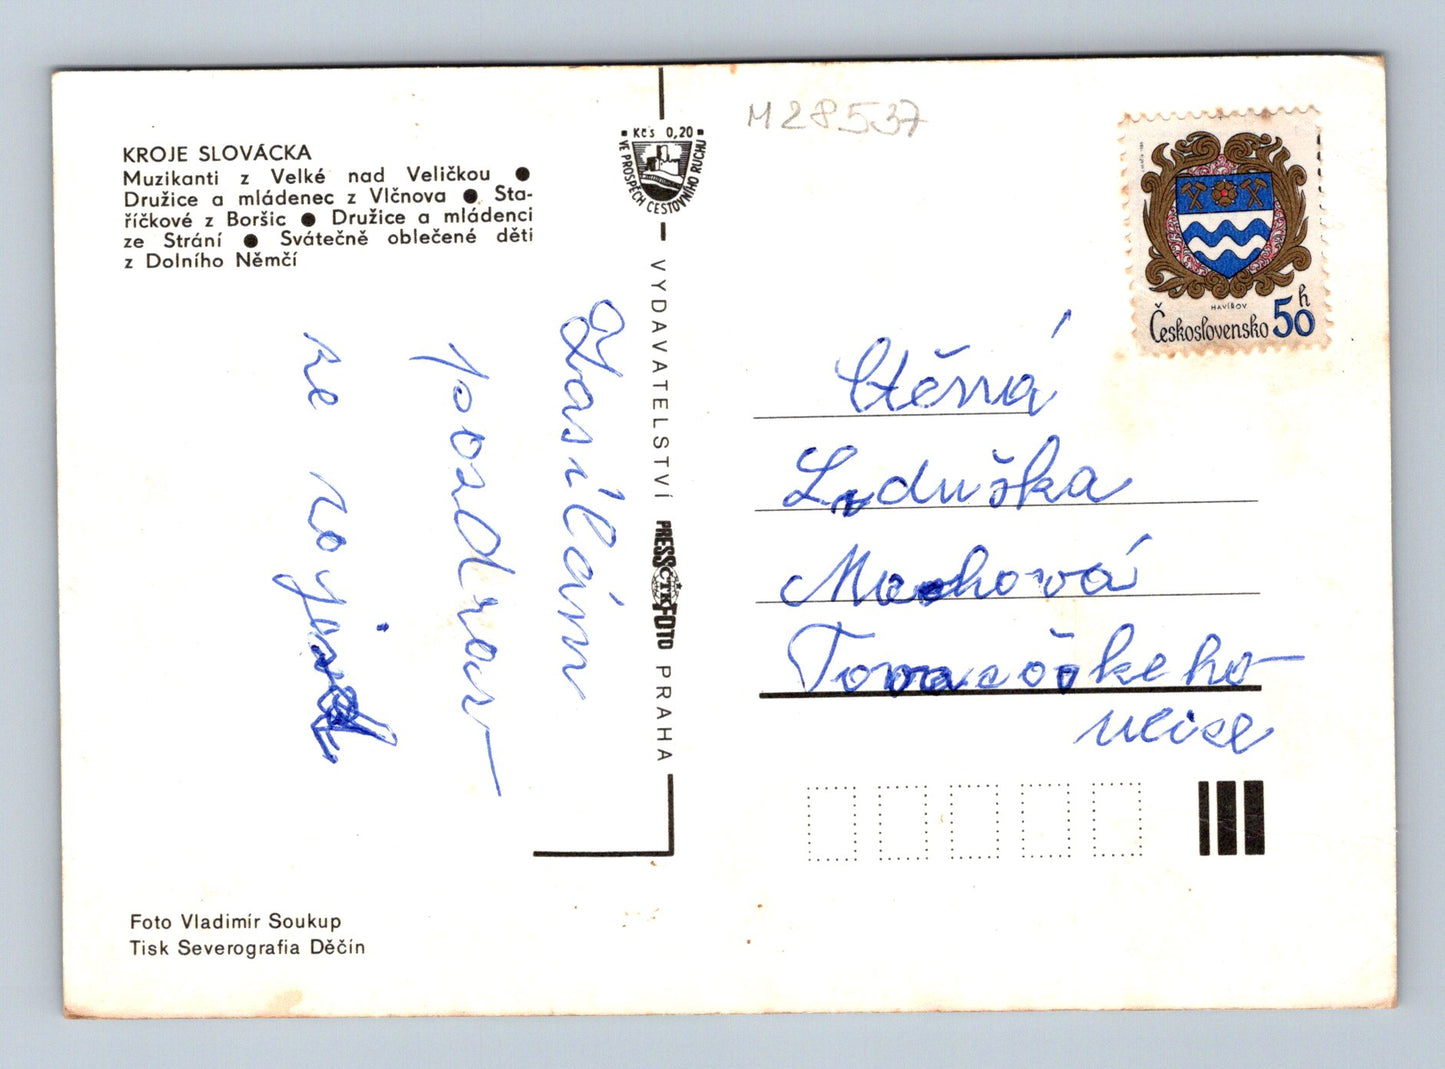 KROJE SLOVÁCKA
Muzikanti z Velké nad Veličkou ●
Družice a mládenec z Vlčnova ● Sta-
říčkové z Boršic ● Družice a mládenci
ze Strání ● Svátečně oblečené děti
z Dolního Němčí
Zasílám
pozdrav
ze
Foto Vladimír Soukup
Tisk Severografia Děčín
Kčs 0,20
VE PROSPĚCH CESTOVNÍHO RUCHU
VYDAVATELSTVÍ PRESSFOTO PRAHA
ČTK
M28537
HAVÍŘOV
Československo 50 h
Ctěná
Liduška
Machová
ulice